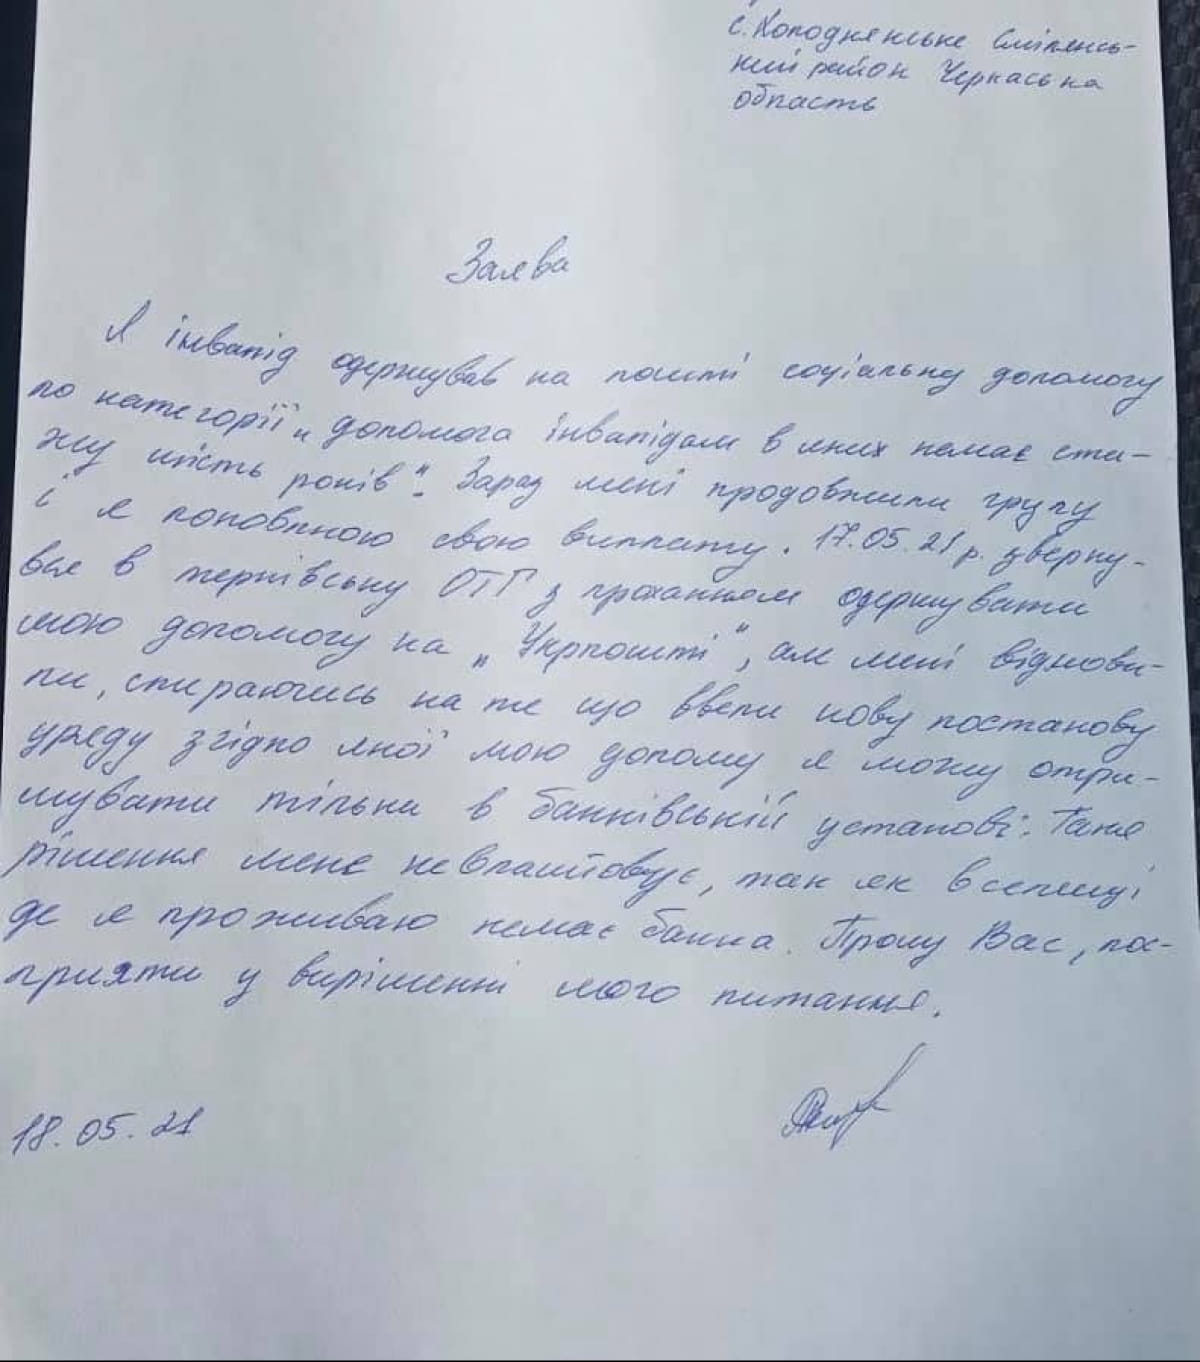 с. Холоднянське Смілянсь-
кий район Черкаська
область
Заява
Я інвалід одержував на пошті соціальну допомогу
по категорії „допомога інвалідам в яких немає ста-
жу шість років". Зараз мені продовжили групу
і я поновлюю свою виплату. 17.05.21 р. зверну-
вся в тернівську ОТГ з проханням одержувати
мою допомогу на „Укрпошті", але мені відмови-
ли, спираючись на те що ввели нову постанову
уряду згідно якої мою допому я можу отри-
мувати тільки в банківській установі. Таке
рішення мене не влаштовує, так як в селищі
де я проживаю немає банка. Прошу Вас, пос-
прияти у вирішенні мого питання.
18.05.21